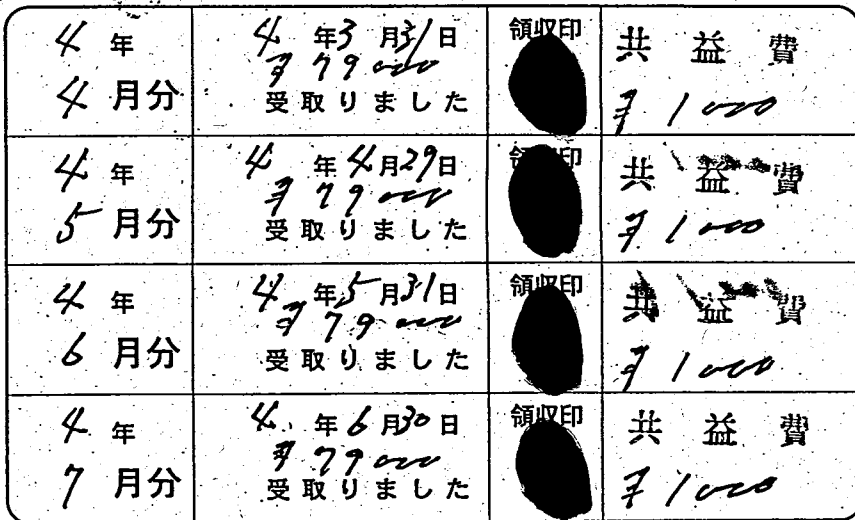 4年
4月分
4年3月31日
¥79000
受取りました
領収印
共益費
¥1000
4年
5月分
4年4月29日
¥79000
受取りました
領収印
共益費
¥1000
4年
6月分
4年5月31日
¥79000
受取りました
領収印
共益費
¥1000
4年
7月分
4年6月30日
¥79000
受取りました
領収印
共益費
¥1000